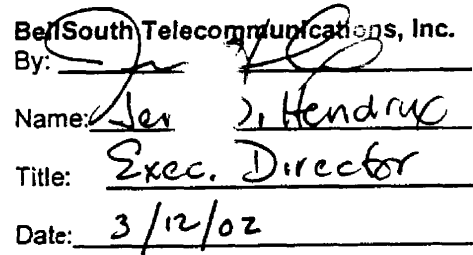 BellSouth Telecommunications, Inc.
By:
Name: Jer D. Hendrix
Title: Exec. Director
Date: 3/12/02